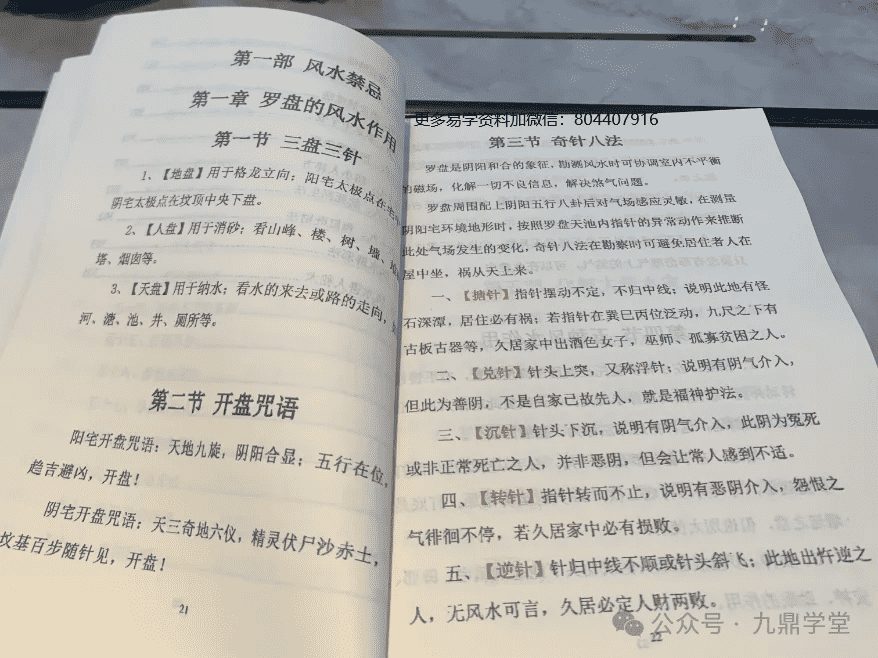 第一部 风水禁忌
第一章 罗盘的风水作用
第一节 三盘三针
1、【地盘】用于格龙立向；阳宅太极点在宅
阴宅太极点在坟顶中央下盘。
2、【人盘】用于消砂：看山峰、楼、树、墙、地
塔、烟囱等。
3、【天盘】用于纳水：看水的来去或路的走向，
河、溏、池、井、厕所等。
第二节 开盘咒语
阳宅开盘咒语：天地九旋，阴阳合显；五行在位，
趋吉避凶，开盘！
阴宅开盘咒语：天三奇地六仪，精灵伏尸沙赤土，
坟基百步随针见，开盘！
21
更多易学资料加微信：804407916
第三节 奇针八法
罗盘是阴阳和合的象征，勘测风水时可协调室内不平衡
的磁场，化解一切不良信息，解决煞气问题。
罗盘周围配上阴阳五行八卦后对气场感应灵敏，在测量
阴阳宅环境地形时，按照罗盘天池内指针的异常动作来推断
此处气场发生的变化，奇针八法在勘察时可避免居住者人在
屋中坐，祸从天上来。
一、【搪针】指针摆动不定，不归中线；说明此地有怪
石深潭，居住必有祸；若指针在巽巳丙位泛动，九尺之下有
古板古器等，久居家中出酒色女子，巫师、孤寡贫困之人。
二、【兑针】针头上突，又称浮针；说明有阴气介入，
但此为善阴，不是自家已故先人，就是福神护法。
三、【沉针】针头下沉，说明有阴气介入，此阴为冤死
或非正常死亡之人，并非恶阴，但会让常人感到不适。
四、【转针】指针转而不止，说明有恶阴介入，怨恨之
气徘徊不停，若久居家中必有损败。
五、【逆针】针归中线不顺或针头斜飞；此地出忤逆之
人，无风水可言，久居必定人财两败。
22
公众号·九鼎学堂